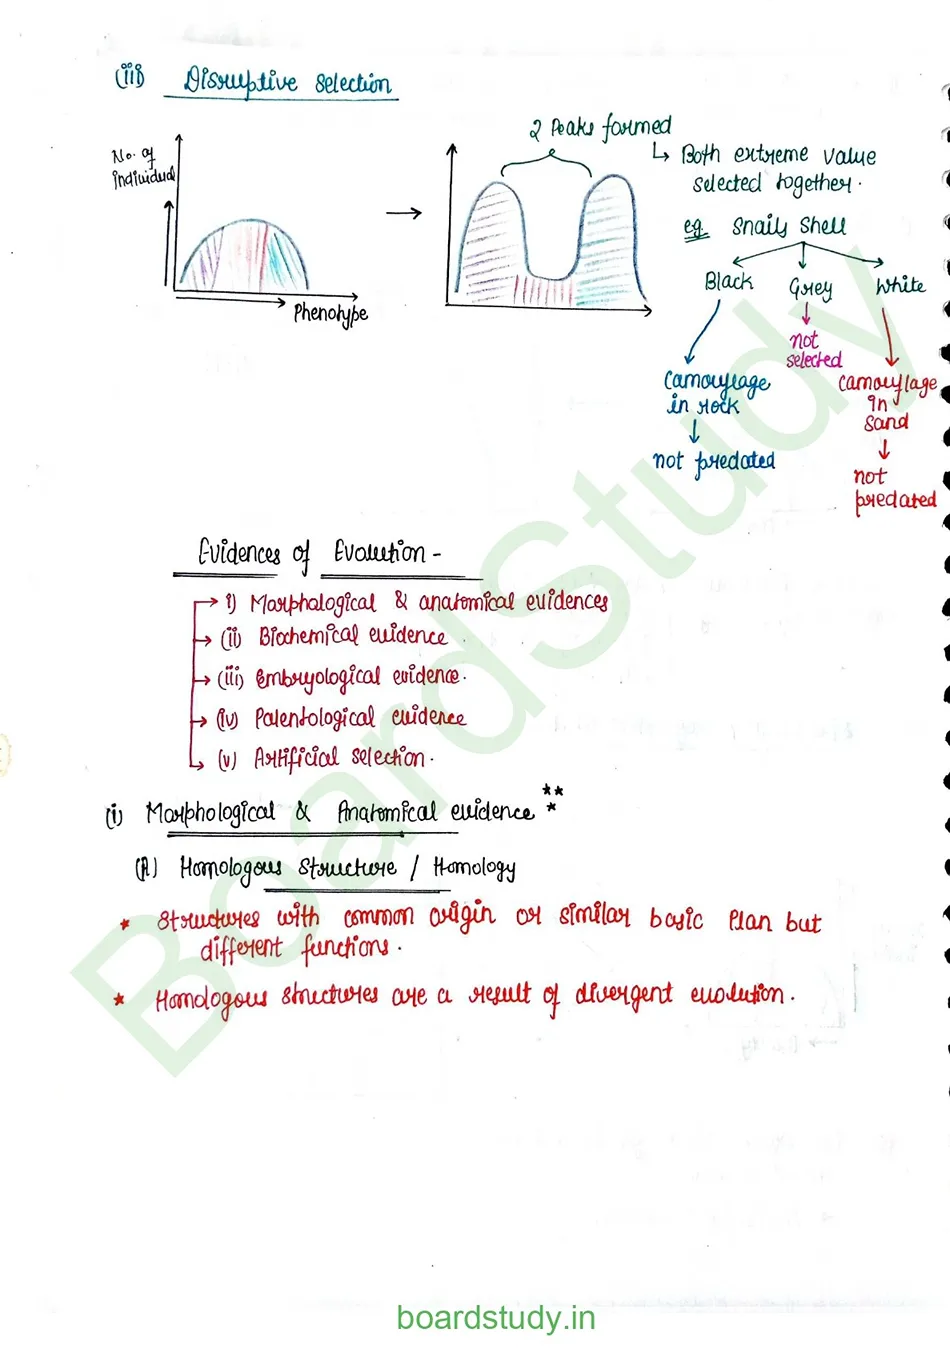 (iii) Disruptive selection
No. of
individual
Phenotype
2 Peaks formed
↳ Both extreme value
selected together.
eg. Snails shell
Black Grey White
not
selected
camouflage
in rock
not predated
camouflage
in
sand
not
predated
Evidences of Evolution -
i) Morphological & anatomical evidences
(ii) Biochemical evidence
(iii) Embryological evidence.
(iv) Palentological evidence
(v) Artificial selection.
(i) Morphological & Anatomical evidence ***
(A) Homologous structure / Homology
* Structures with common origin or similar basic Plan but
different functions.
* Homologous structures are a result of divergent evolution.
BoardStudy
boardstudy.in